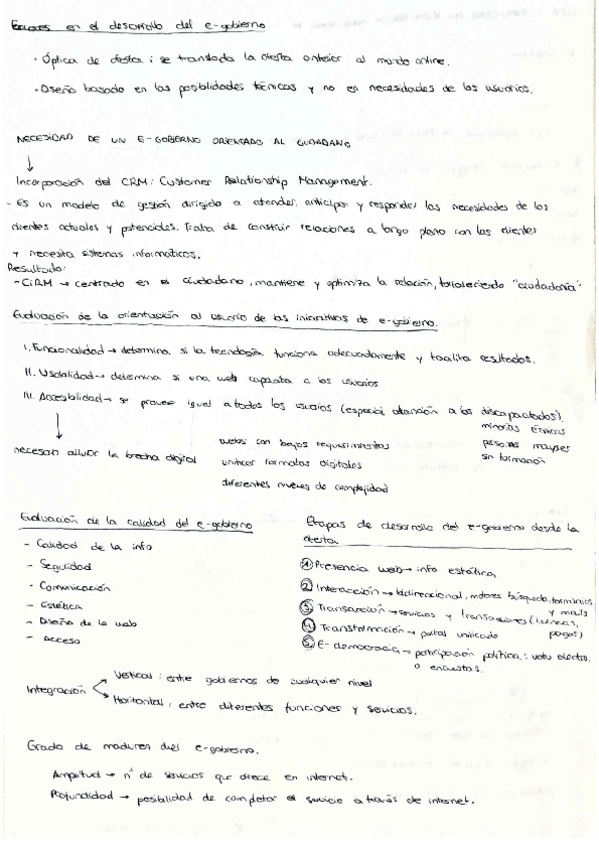 Errores en el desarrollo del e-gobierno
· Óptica de oferta: se translada la oferta anterior al mundo online.
· Diseño basado en las posibilidades técnicas y no en necesidades de los usuarios.
NECESIDAD DE UN E-GOBIERNO ORIENTADO AL CIUDADANO
↓
Incorporación del CRM: Customer Relationship Management.
- Es un modelo de gestión dirigido a atender, anticipar y responder las necesidades de los
clientes actuales y potenciales. Trata de construir relaciones a largo plazo con los clientes
y necesita sistemas informáticos.
Resultado:
- CiRM → centrado en el ciudadano, mantiene y optimiza la relación, fortaleciendo "ciudadanía"
Evaluación de la orientación al usuario de las iniciativas de e-gobierno.
I. Funcionalidad → determina si la tecnología funciona adecuadamente y facilita resultados.
II. Usabilidad → determina si una web capacita a los usuarios
III. Accesibilidad → se provee igual a todos los usuarios (especial atención a los discapacitados),
minorías étnicas
personas mayores
sin formación
↓
necesario aliviar la brecha digital
webs con bajos requerimientos
unificar formatos digitales
diferentes niveles de complejidad
Evaluación de la calidad del e-gobierno
- Calidad de la info
- Seguridad
- Comunicación
- Estética
- Diseño de la web
- Acceso
Etapas de desarrollo del e-gobierno desde la
oferta
① Presencia web → info estática
② Interacción → bidireccional, motores búsqueda, formularios
y mails
③ Transacción → servicios y transacciones (licencias,
pagos)
④ Transformación → portal unificado
⑤ E-democracia → participación política: voto electro.
o encuestas.
Integración
Vertical: entre gobiernos de cualquier nivel
Horizontal: entre diferentes funciones y servicios.
Grado de madurez del e-gobierno.
Amplitud → nº de servicios que ofrece en internet.
Profundidad → posibilidad de completar el servicio a través de internet.